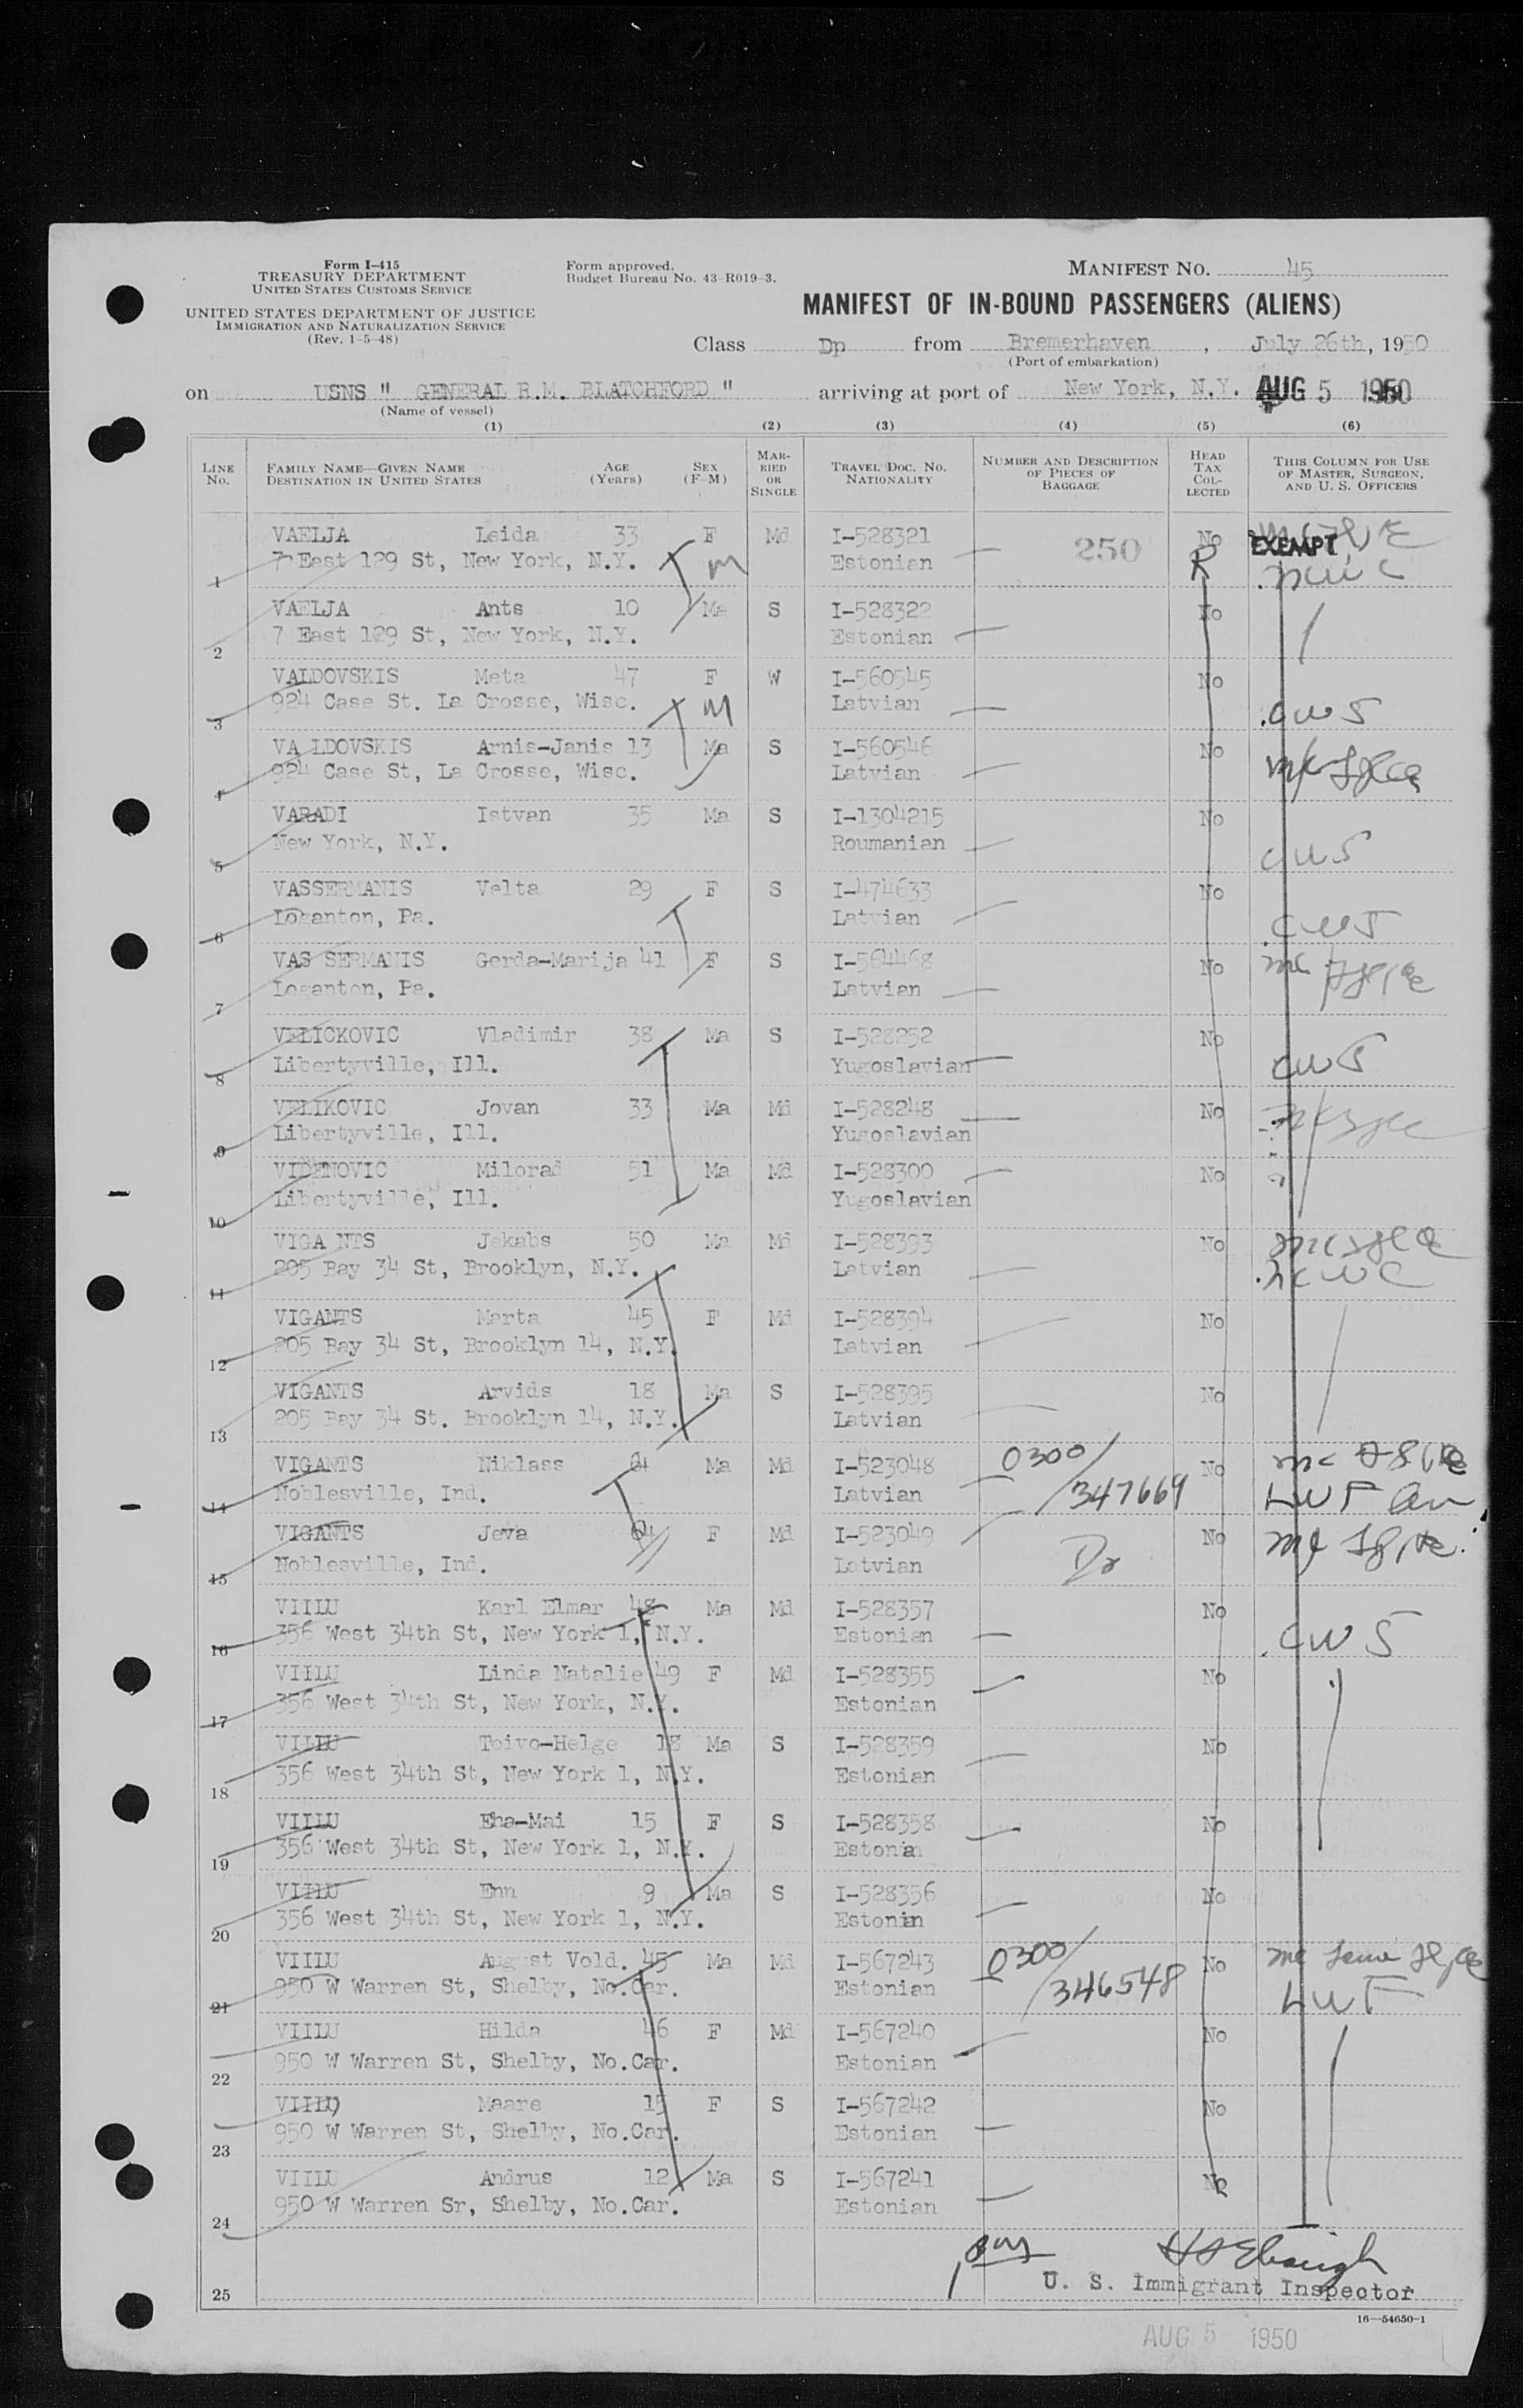 Form I-415
TREASURY DEPARTMENT
UNITED STATES CUSTOMS SERVICE
UNITED STATES DEPARTMENT OF JUSTICE
IMMIGRATION AND NATURALIZATION SERVICE
(Rev. 1-5-48)
Form approved.
Budget Bureau No. 43-R019-3.
MANIFEST NO. 45
MANIFEST OF IN-BOUND PASSENGERS (ALIENS)
Class Dp from Bremerhaven, July 26th, 1950
(Port of embarkation)
on USNS " GENERAL R.M. BLATCHFORD " arriving at port of New York, N.Y. AUG 5 1950
(Name of vessel)
(1) (2) (3) (4) (5) (6)
LINE No. FAMILY NAME—GIVEN NAME DESTINATION IN UNITED STATES AGE (Years) SEX (F-M) MARRIED OR SINGLE TRAVEL DOC. NO. NATIONALITY NUMBER AND DESCRIPTION OF PIECES OF BAGGAGE HEAD TAX COLLECTED THIS COLUMN FOR USE OF MASTER, SURGEON, AND U. S. OFFICERS
VAELJA Leida 33 F Md I-528321 250 No EXEMPT
1 7 East 129 St, New York, N.Y. M Estonian R
VAELJA Ants 10 Ma S I-528322 No
2 7 East 129 St, New York, N.Y. Estonian
VALDOVSKIS Meta 47 F W I-560545 No
3 924 Case St. La Crosse, Wisc. M Latvian CWS
VA LDOVSKIS Arnis-Janis 13 Ma S I-560546 No
4 924 Case St, La Crosse, Wisc. Latvian
VARADI Istvan 35 Ma S I-1304215 No
5 New York, N.Y. Roumanian CWS
VASSERMANIS Velta 29 F S I-474633 No
6 Loganton, Pa. Latvian CWS
VAS SERMANIS Gerda-Marija 41 F S I-564468 No
7 Loganton, Pa. Latvian
VELICKOVIC Vladimir 38 Ma S I-528252 No
8 Libertyville, Ill. Yugoslavian CWS
VELIKOVIC Jovan 33 Ma Md I-528248 No
9 Libertyville, Ill. Yugoslavian
VIDENOVIC Milorad 51 Ma Md I-528300 No
10 Libertyville, Ill. Yugoslavian
VIGA NTS Jekabs 50 Ma Md I-528393 No
11 205 Bay 34 St, Brooklyn, N.Y. Latvian NCWC
VIGANTS Marta 45 F Md I-528394 No
12 205 Bay 34 St, Brooklyn 14, N.Y. Latvian
VIGANTS Arvids 18 Ma S I-528395 No
13 205 Bay 34 St. Brooklyn 14, N.Y. Latvian
VIGANTS Niklass Ma Md I-523048 0300/ No
14 Noblesville, Ind. Latvian 347669 LWF
VIGANTS Jeva F Md I-523049 No
15 Noblesville, Ind. Latvian Do
VIILU Karl Elmar 48 Ma Md I-528357 No
16 356 West 34th St, New York 1, N.Y. Estonian CWS
VIILU Linda Natalie 49 F Md I-528355 No
17 356 West 34th St, New York, N.Y. Estonian
VIILU Toivo-Helge 18 Ma S I-528359 No
18 356 West 34th St, New York 1, N.Y. Estonian
VIILU Eha-Mai 15 F S I-528358 No
19 356 West 34th St, New York 1, N.Y. Estonian
VIILU Enn 9 Ma S I-528356 No
20 356 West 34th St, New York 1, N.Y. Estonian
VIILU August Vold. 45 Ma Md I-567243 0300/ No
21 950 W Warren St, Shelby, No.Car. Estonian 346548 LWF
VIILU Hilda 46 F Md I-567240 No
22 950 W Warren St, Shelby, No.Car. Estonian
VIILU Maare 15 F S I-567242 No
23 950 W Warren St, Shelby, No.Car. Estonian
VIILU Andrus 12 Ma S I-567241 No
24 950 W Warren Sr, Shelby, No.Car. Estonian
25 U. S. Immigrant Inspector
16—54650-1
AUG 5 1950